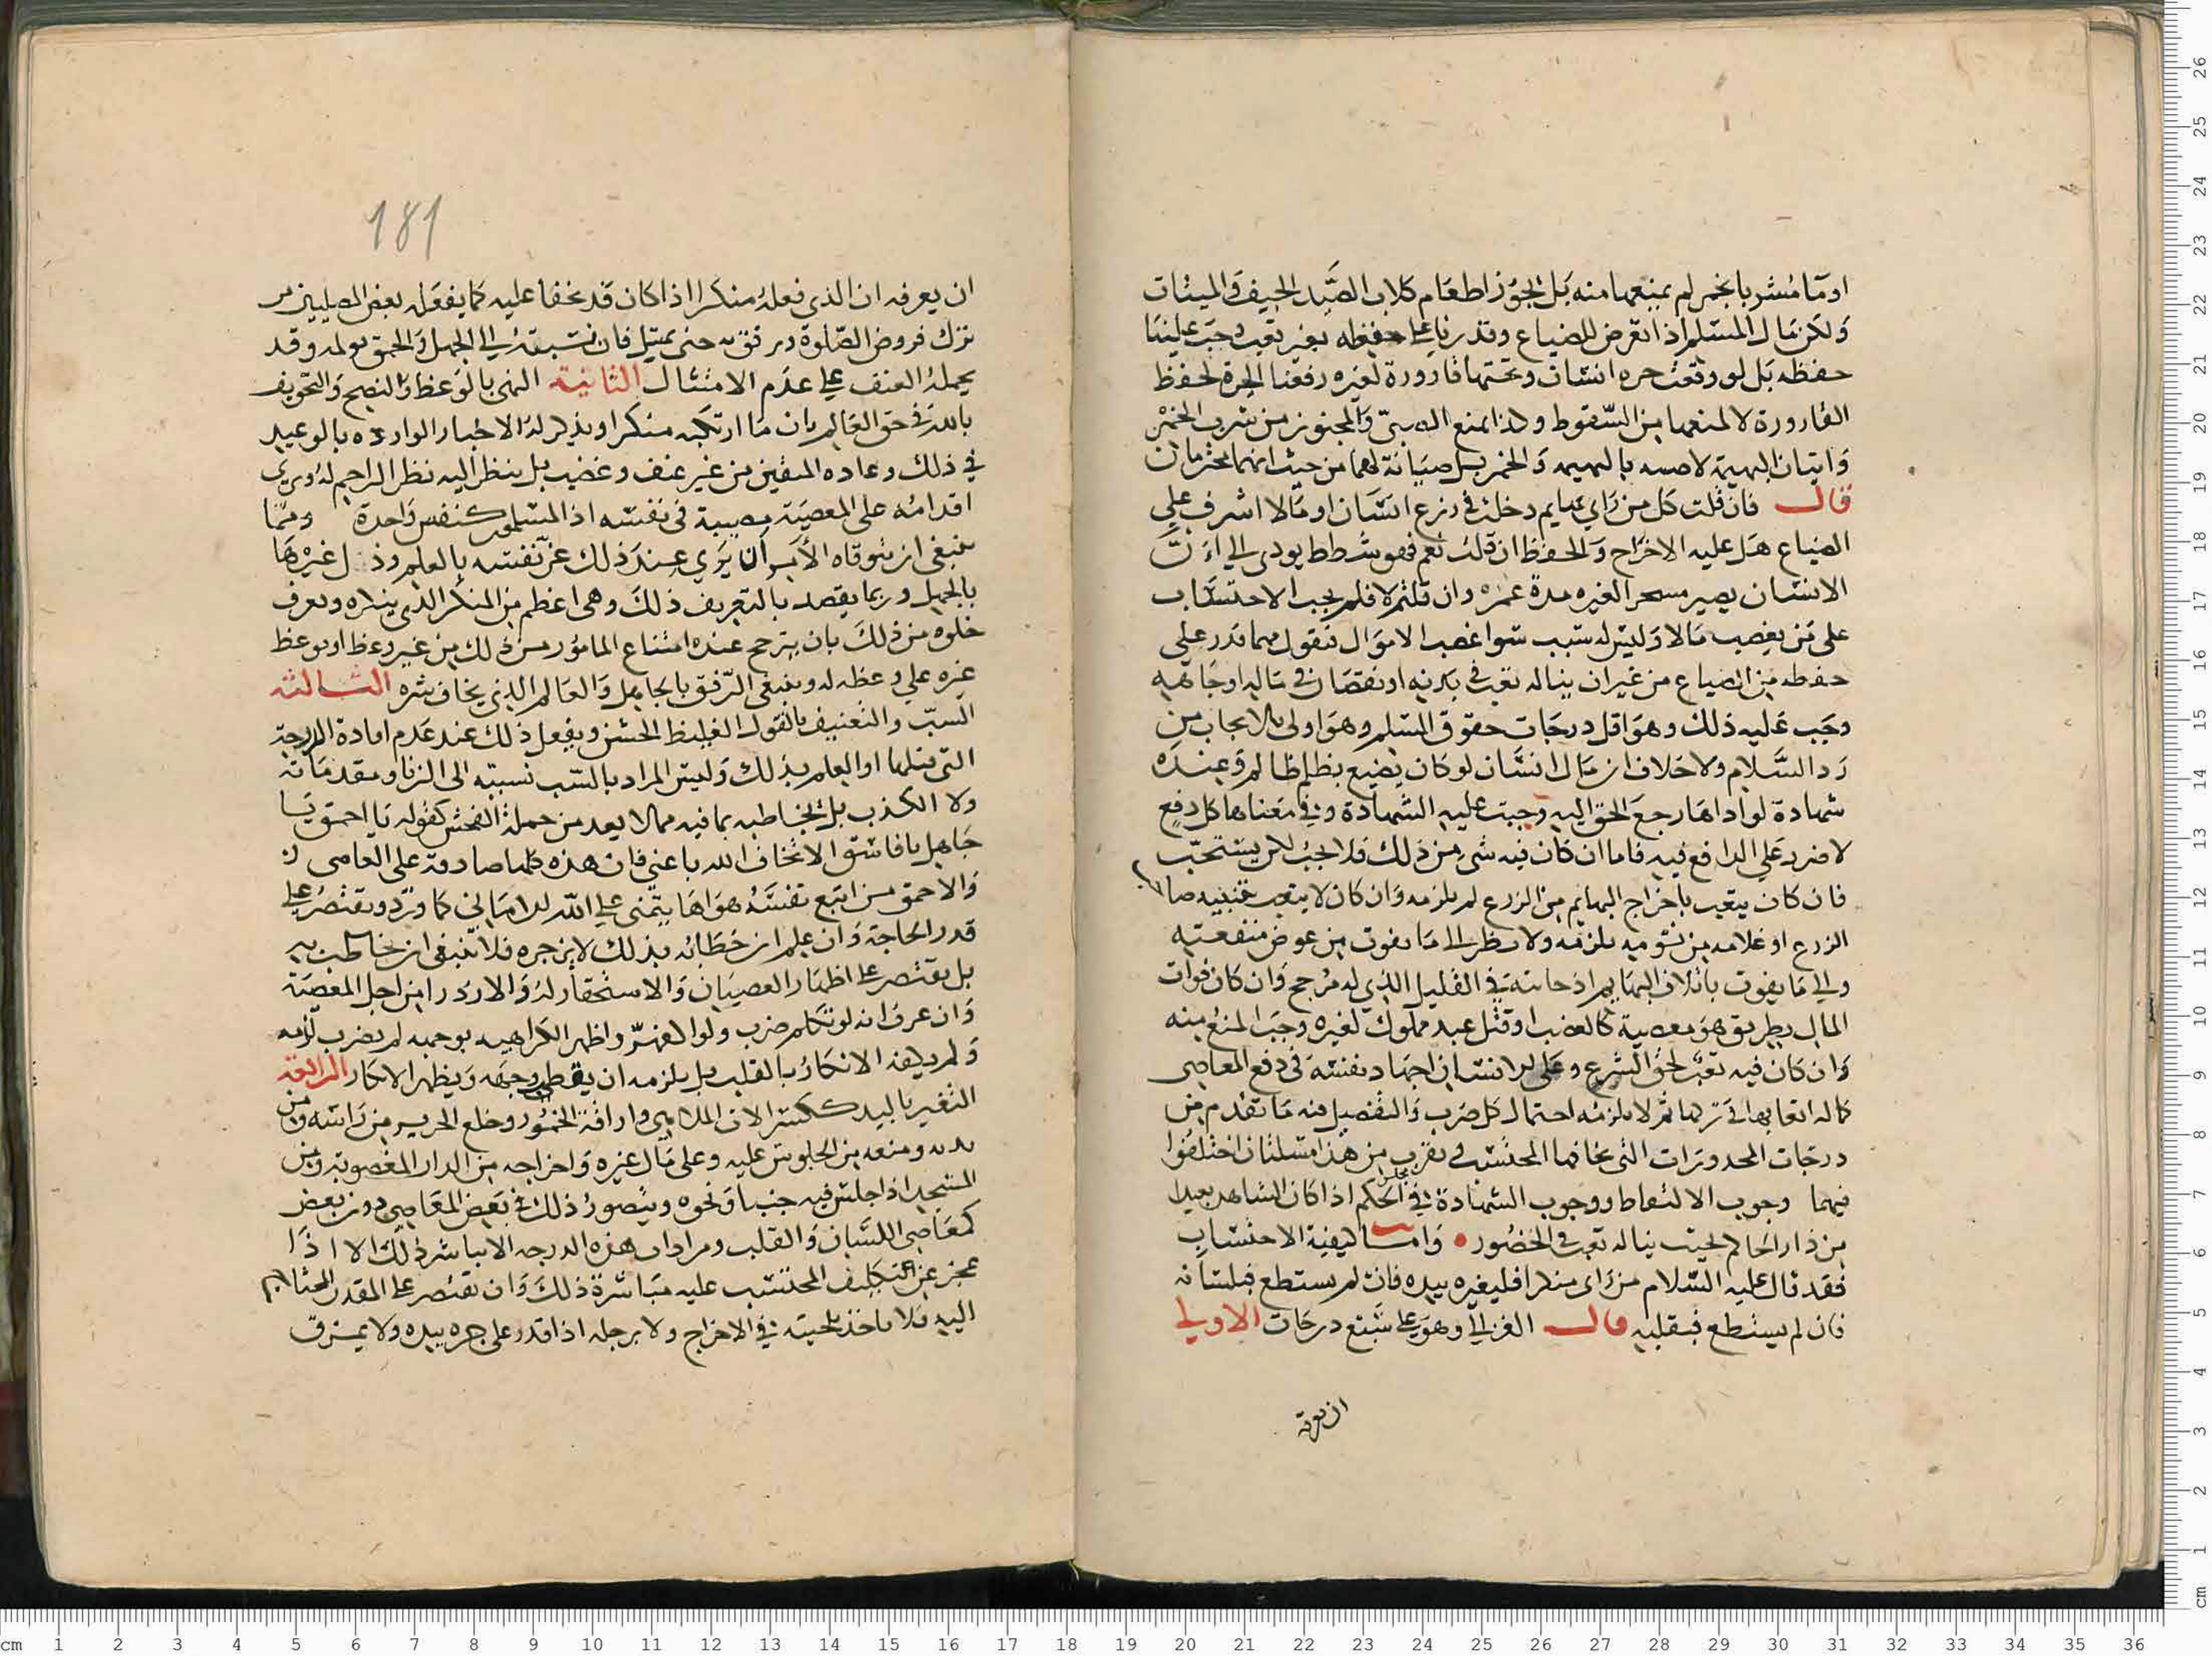 او ماء مشربا بخمر لم يمنعها منه بل يجوز اطعام كلاب الصيد الجيف والميتات
ولكن مال المسلم اذا تعرض للضياع وقدرنا على حفظه بغير تعب وجب علينا
حفظه بل لو وقعت جره انسان وتحتها قارورة لغيره رفعنا الجرة لحفظ
القارورة لا لمنعها من السقوط وكذا يمنع الصبي والمجنون من شرب الخمر
واتيان البهيمة لا صيانة بالبهيمه والخمر بل صيانة لهما من حيث انهما محترمان
قال فان قلت كل من راي بهايم دخلت في زرع انسان او مالا اشرف على
الضياع هل عليه الاخراج والحفظ ان قلت نعم فهو شطط يودى الى ان
الانسان يصير مسخرا لغيره مدة عمره وان قلتم لا فلم يجب الاحتساب
على من يغصب مالا وليس له سبب سوا غصب الاموال فنقول مهما قدر على
حفظه من الضياع من غير ان يناله تعب في بدنه او نقصان في ماله او جاهه
وجب عليه ذلك وهو اقل درجات حقوق المسلم وهو اولى بالايجاب من
رد السلام ولا خلاف ان مال انسان لو كان يضيع بظلم ظالم وعنده
شهادة لو اداها رجع الحق اليه وجبت عليه الشهادة وفي معناها كل دفع
لا ضرر على الدافع فيه فاما ان كان فيه شي من ذلك فلا يجب لكن يستحب
فان كان يتعب باخراج البهايم من الزرع لم يلزمه وان كان لا يتعب بتنبيه صاحب
الزرع او غلامه من نومه يلزمه ولا ينظر الى ما يفوت من عوض منفعته
والى ما يفوت باتلاف البهايم اذ جانبه في القليل الذي له مرجح وان كان فوات
المال بطريق هو معصية كالغصب او قتل عبد مملوك لغيره وجب المنع منه
وان كان فيه تعب لحق الشرع وعلى الانسان اجهاد نفسه في دفع المعاصي
كما له اتعابها في تركها ثم لا يلزمه احتمال كل ضرب والتفصيل فيه ما تقدم من
درجات المحذورات التي يخافها المحتسب ويقرب من هذا مسلتان اختلفوا
فيهما وجوب الالتقاط ووجوب الشهادة في مجلس الحكم اذا كان الشاهد بعيدا
من دار الحاكم بحيث يناله تعب في الحضور • واما كيفية الاحتساب
فقد قال عليه السلام من راى منكرا فليغيره بيده فان لم يستطع فبلسانه
فان لم يستطع فبقلبه قال الغزالي وهو على سبع درجات الاولى
ان يعرفه
181
ان يعرفه ان الذي فعله منكرا اذا كان قد يخفا عليه كما يفعله بعض المصليين من
ترك فروض الصلوة برفق به حتى يمتثل فان نسبته الى الجهل والحمق يولمه وقد
يحمله العنف على عدم الامتثال الثانية النهي بالوعظ والنصح والتخويف
بالله في حق العالم بان ما ارتكبه منكرا ويذكر له الاخبار الواردة بالوعيد
في ذلك وعاده المتقين من غير عنف وغضب بل ينظر اليه نظر الراحم له ويرى
اقدامه على المعصية مصيبة في نفسه اذ المسلمون كنفس واحدة ومما
ينبغي ان يتوقاه الآمر ان يري عند ذلك عز نفسه بالعلم وذل غيرها
بالجهل وربما يقصد بالتعريف ذلك وهي اعظم من المنكر الذي ينكره ويعرف
خلوه من ذلك بان يترجح عنده امتناع المامور من ذلك من غير وعظ او بوعظ
غيره على وعظه له وينبغي الرفق بالجاهل والعالم الذي يخاف شره الثالثه
السب والتعنيف بالقول الغليظ الخشن ويفعل ذلك عند عدم افادة الدرجة
التي قبلها او العلم بذلك وليس المراد بالسب نسبته الى الزنا ومقدماته
ولا الكذب بل يخاطبه بما فيه مما لا يعد من جملة الفحش كقوله يا احمق يا
جاهل يا فاسق الا تخاف الله يا غبي فان هذه كلها صادقة على العاصي
والاحمق من اتبع نفسه هواها يتمنى على الله الاماني كما ورد ويقتصر على
قدر الحاجة وان علم ان خطابه بذلك لا يزجره فلا ينبغي ان يخاطب به
بل يقتصر على اظهار العصيان والاستحقار له والازدرا من اجل المعصية
وان عرف انه لو تكلم ضرب ولو اكفهر واظهر الكراهيه بوجهه لم يضرب لزمه
ولم يكفه الانكار بالقلب بل يلزمه ان يقطب وجهه ويظهر الانكار الرابعة
التغيير باليد ككسر الات الملاهي واراقة الخمور وخلع الحرير من راسه ومن
بدنه ومنعه من الجلوس عليه وعلى مال غيره واخراجه من الدار المغصوبة ومن
المسجد اذا جلس فيه جنبا ونحوه ويتصور ذلك في بعض المعاصي دون بعض
كمعاصي اللسان والقلب ومن اداب هذه الدرجه الا يباشر ذلك الا اذا
عجز عن تكليف المحتسب عليه مباشرة ذلك وان يقتصر على القدر المحتاج
اليه فلا ياخذ بلحيته في الاخراج ولا برجله اذا قدر على جره بيده ولا يمزق